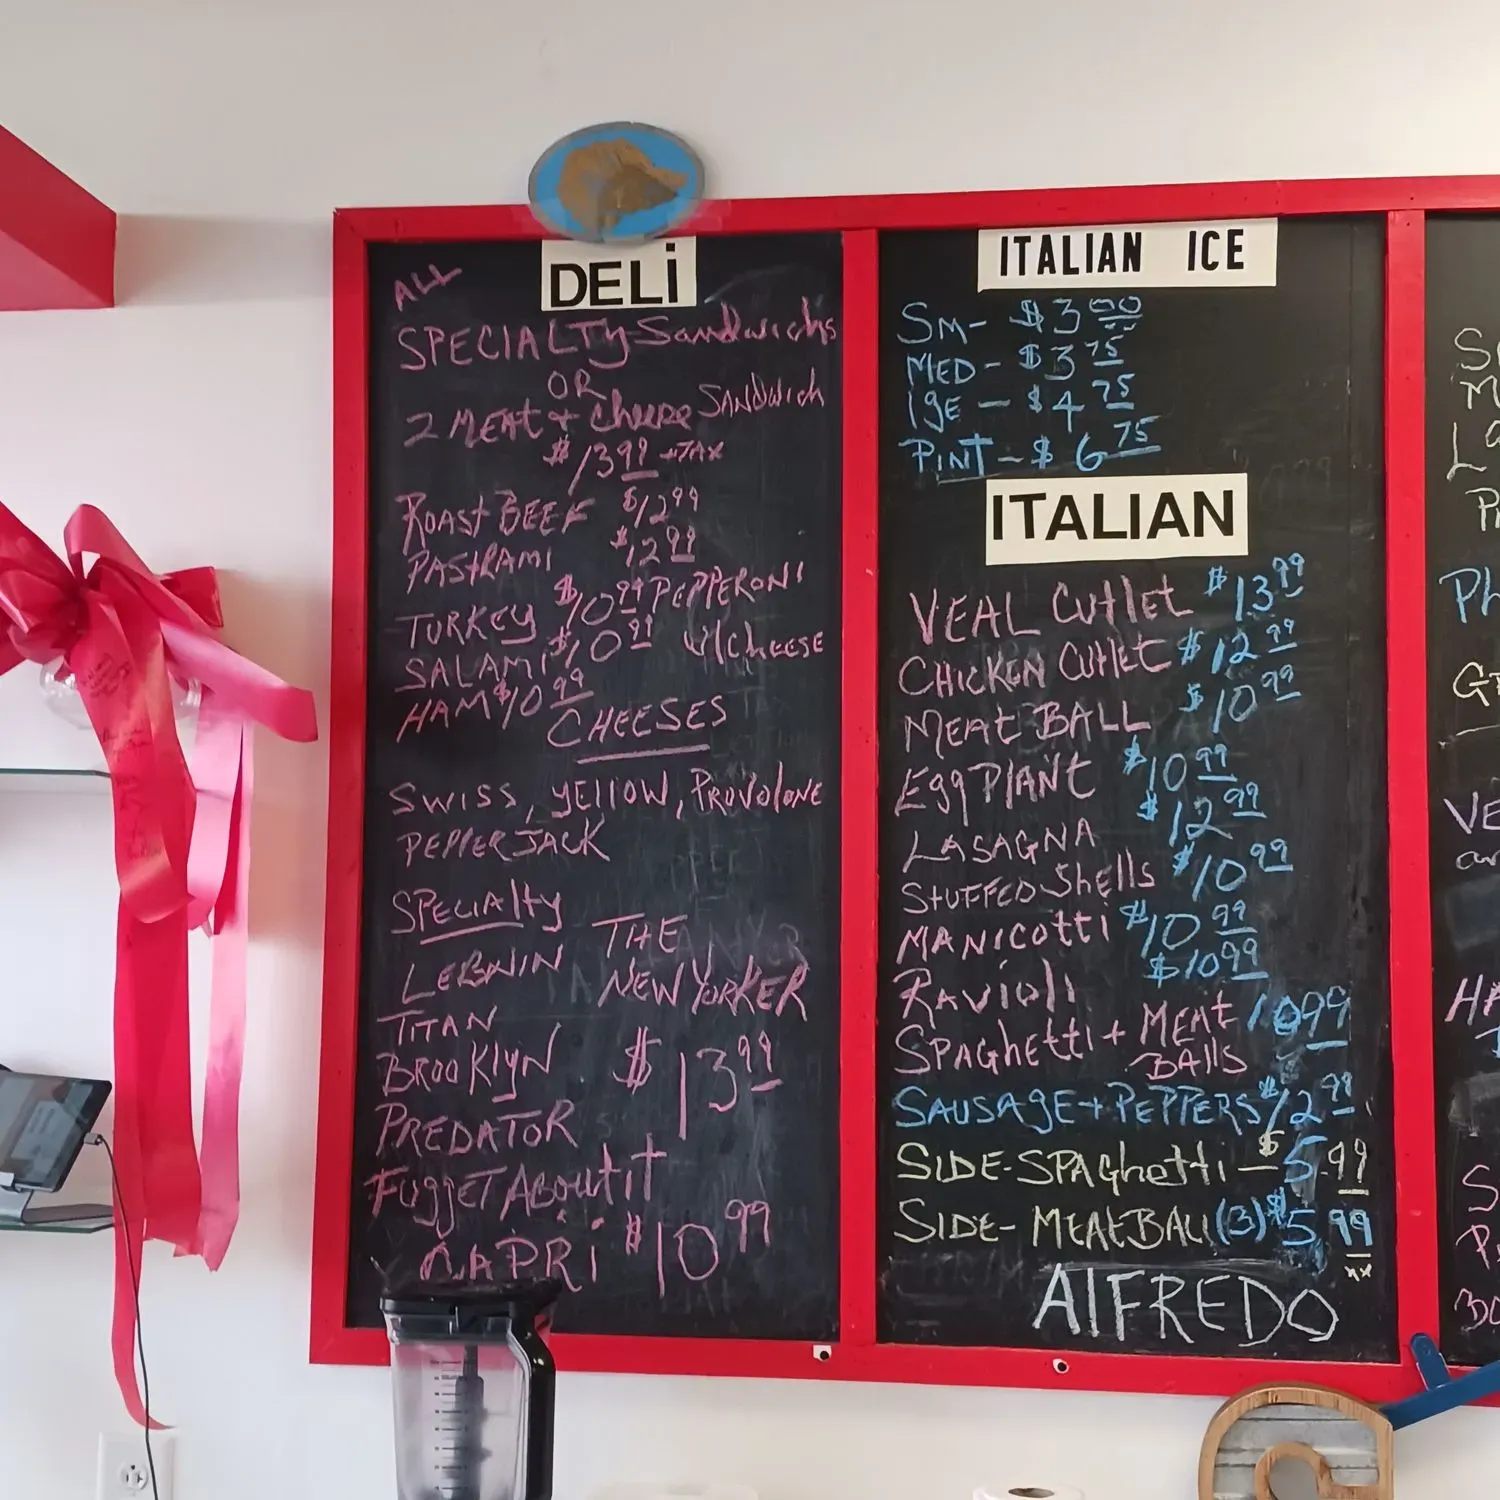 DELi
ALL
SPECIALTY Sandwichs
OR
2 MEAT + cheese SANDwich
$13.99 +TAX
ROAST BEEF $12.99
PASTRAMI $12.99
TURKEY $10.99 PEPPERONI
SALAMI $10.99 w/CHEESE
HAM $10.99
CHEESES
SWISS, YEllOW, PROVOlONE
PEPPER JACK
SPECIAlty
THE
NEW YORKER
TITAN
BROOKlYN $13.99
PREDATOR
FUGGET ABOUT iT
CAPRi $10.99
ITALIAN ICE
SM- $3.00
MED- $3.75
lgE - $4.75
PINT - $6.75
ITALIAN
VEAL CUtlet $13.99
CHICKEN CUtlet $12.99
MEAT BALL $10.99
Egg PlANT $10.99
LASAGNA $12.99
STUFFED Shells $10.99
MANICOtti $10.99
RAViOli $10.99
SPAGhetti + MEAT BAllS 10.99
SAUSAGE + PEPPERS $12.99
SIDE-SPAGhetti - $5.99
SIDE- MEATBAll (3) $5.99
xx
AlFREDO